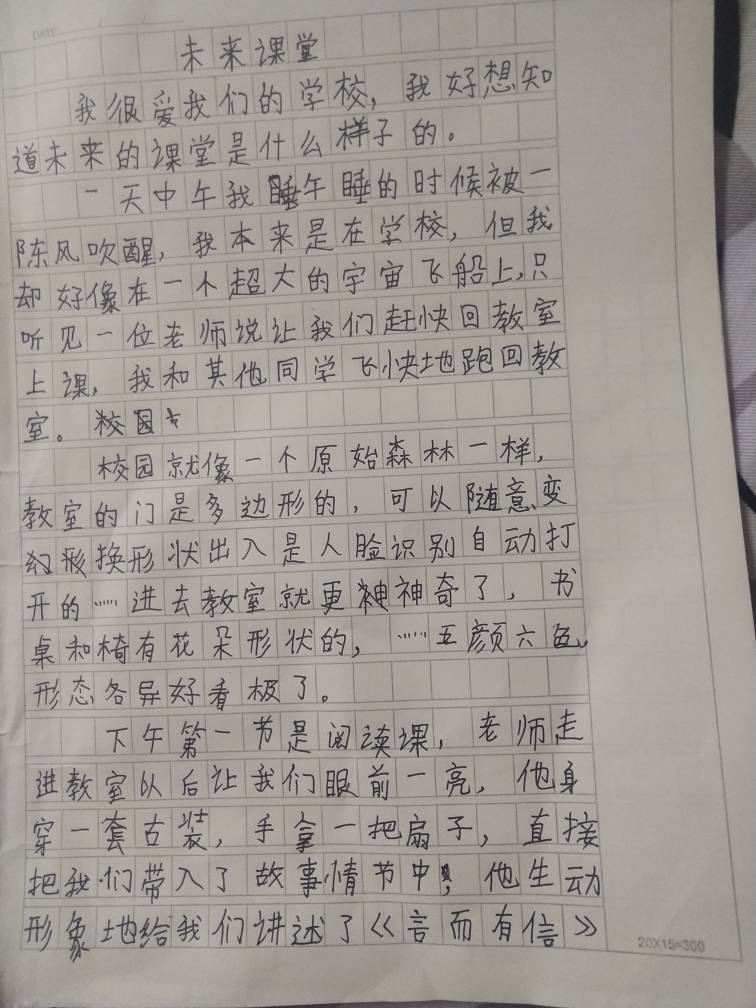 DATE
未来课堂
我很爱我们的学校，我好想知
道未来的课堂是什么样子的。
一天中午我睡午睡的时候被一
阵风吹醒，我本来是在学校，但我
却好像在一个超大的宇宙飞船上，只
听见一位老师说让我们赶快回教室
上课，我和其他同学飞快地跑回教
室。校园
校园就像一个原始森林一样，
教室的门是多边形的，可以随意变
幻形换形状出入是人脸识别自动打
开的……进去教室就更神神奇了，书
桌和椅有花朵形状的，……五颜六色，
形态各异好看极了。
下午第一节是阅读课，老师走
进教室以后让我们眼前一亮，他身
穿一套古装，手拿一把扇子，直接
把我们带入了故事情节中，他生动
形象地给我们讲述了《言而有信》
20X15=300